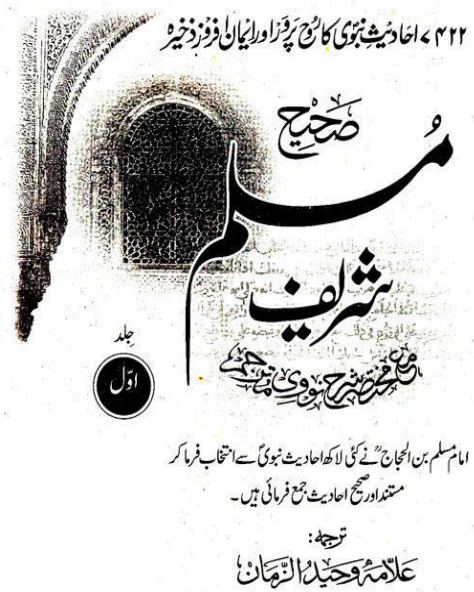 ۷۴۲۲ احادیثِ نبوی کا روح پرور اور ایمان افروز ذخیرہ
صحیح
مُسلم
شریف
مع مختصر شرح نووی مترجم
جلد
اوّل
امام مسلم بن الحجاجؒ نے کئی لاکھ احادیث نبویؐ سے انتخاب فرما کر
مستند اور صحیح احادیث جمع فرمائی ہیں۔
ترجمہ:
علامہ وحید الزمان